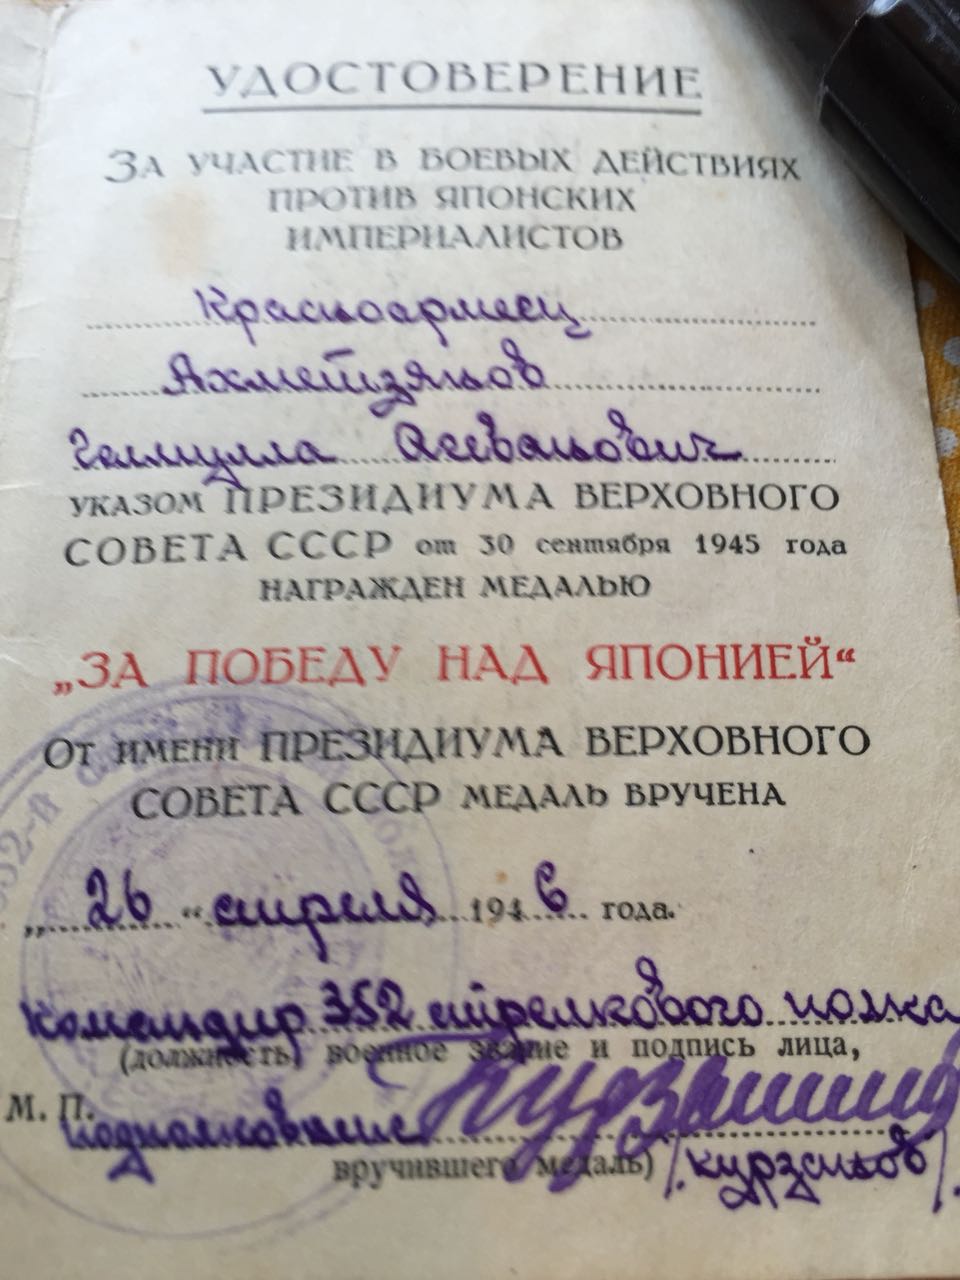 УДОСТОВЕРЕНИЕ
ЗА УЧАСТИЕ В БОЕВЫХ ДЕЙСТВИЯХ
ПРОТИВ ЯПОНСКИХ
ИМПЕРИАЛИСТОВ
Красноармеец
Ахметзянов
УКАЗОМ ПРЕЗИДИУМА ВЕРХОВНОГО
СОВЕТА СССР от 30 сентября 1945 года
НАГРАЖДЕН МЕДАЛЬЮ
„ЗА ПОБЕДУ НАД ЯПОНИЕЙ“
ОТ ИМЕНИ ПРЕЗИДИУМА ВЕРХОВНОГО
СОВЕТА СССР МЕДАЛЬ ВРУЧЕНА
„26“ апреля 1946 года.
Командир 352 стрелкового полка
(должность, военное звание и подпись лица,
М. П. подполковник
вручившего медаль) /Курзанов/.